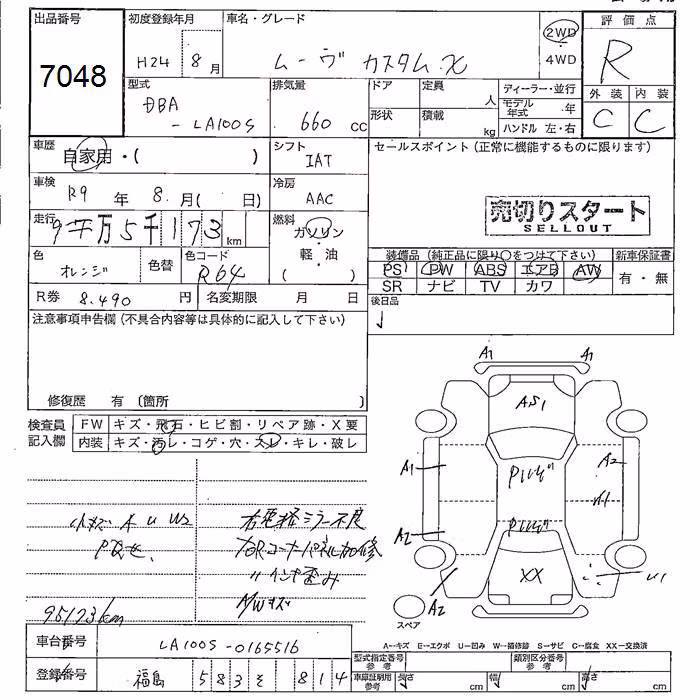 出品番号 初度登録年月 車名・グレード 評価点
7048 H24年8月 ムーヴ カスタムX 2WD・4WD R
型式 DBA-LA100S 排気量 660cc ドア 定員 人 ディーラー・並行
形状 積載 kg モデル年式 年 ハンドル 左・右
外装 内装
C C
車歴 自家用・( ) シフト IAT セールスポイント(正常に機能するものに限ります)
車検 R9年8月( 日) 冷房 AAC
売切りスタート
SELLOUT
走行 9万5千173km 燃料 ガソリン・軽・油 ( )
色 オレンジ 色替 色コード R64
装備品(純正品に限り○をつけて下さい) 新車保証書
PS PW ABS エアB AW 有・無
SR ナビ TV カワ
R券 8.490円 名変期限 月 日 後日品
注意事項申告欄(不具合内容等は具体的に記入して下さい)
修復歴 有(箇所 )
検査員記入欄 FW キズ・飛石・ヒビ割・リペア跡・X要
内装 キズ・汚レ・コゲ・穴・スレ・キレ・破レ
A1 A1
AS1
A1 A2
A1
A2
XX
A2 U1
スペア
小キズ A U U2
95173km
A―キズ E―エクボ U―凹み W―補修跡 S―サビ C―腐食 XX―交換済
車台番号 LA100S-0165516
型式指定番号 参考 類別区分番号 参考
登録番号 福島 583 そ 814
車庫証明用 参考 長さ cm 幅 cm 高さ cm